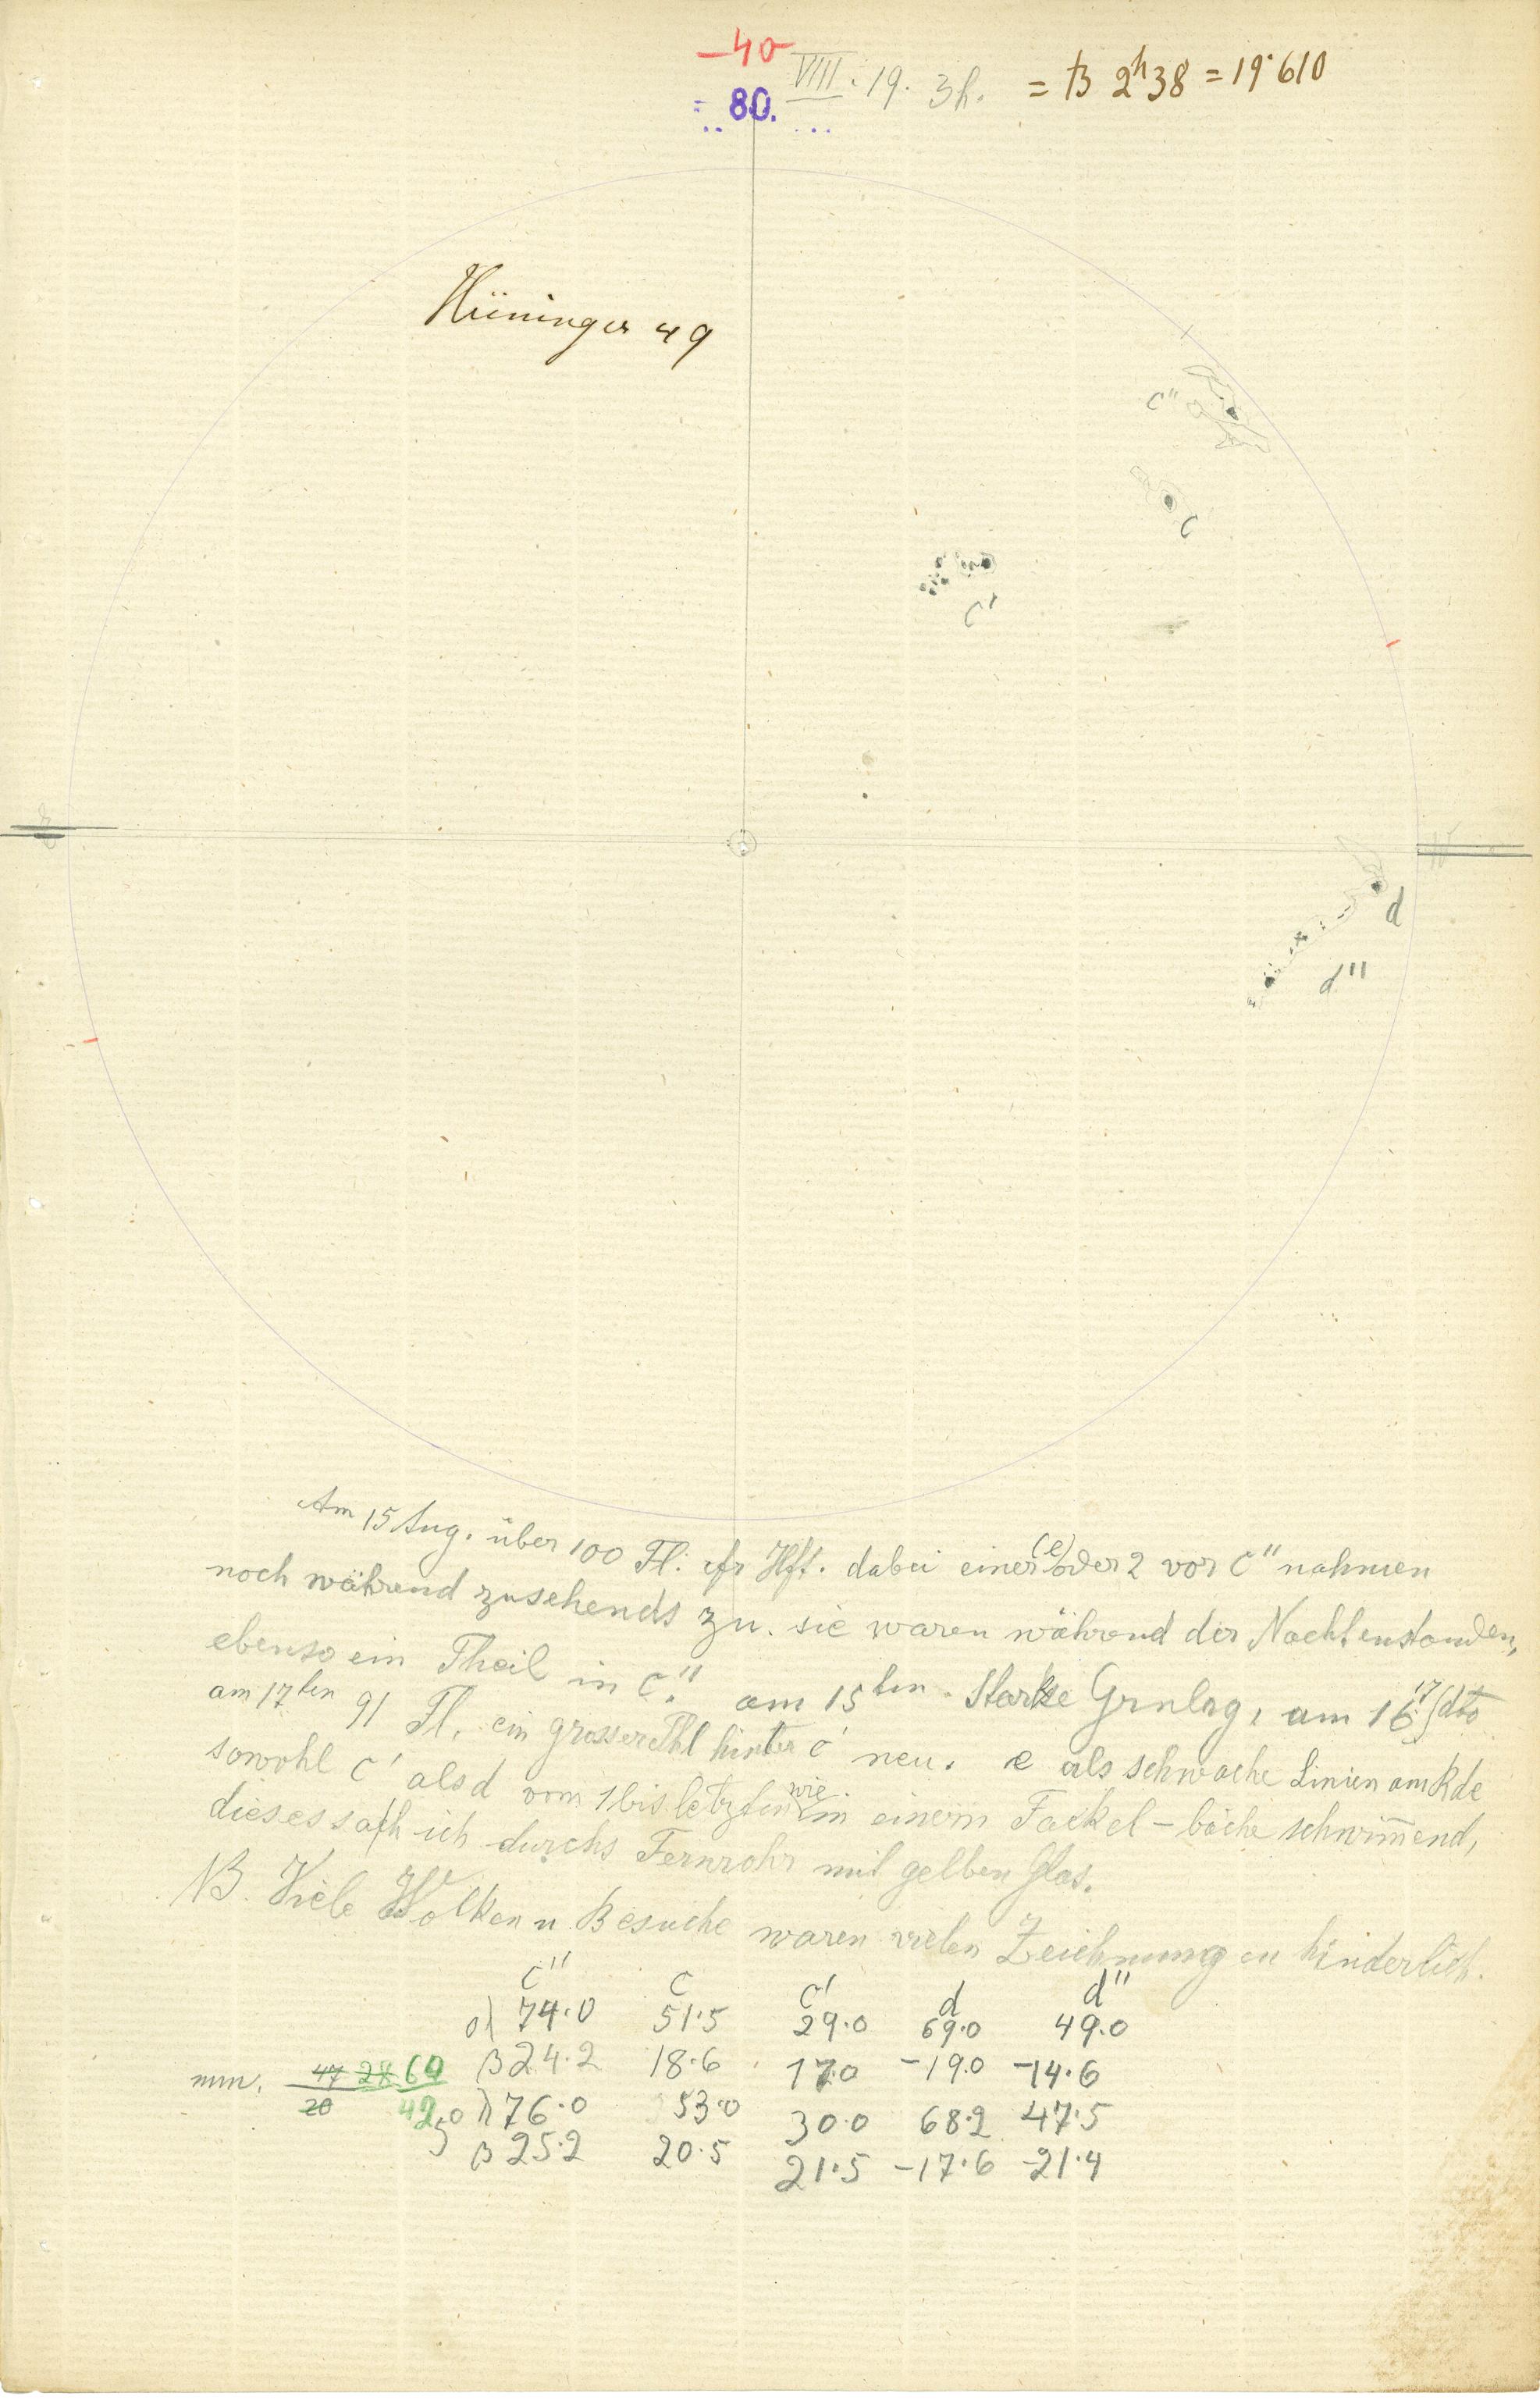 -40-
80.
VIII. 19. 3h. = B 2h 38 = 19.610
Hüninger 49
c"
c
c'
d
d"
Am 15 Aug. über 100 Fl: Hft. dabei einer (e) oder 2 vor c" nahmen
noch während zusehends zu. sie waren während der Nacht enstanden,
ebenso ein Theil in c". am 15ten. Starke Grnlag, am 16. 17 dto
am 17ten 91 Fl. ein grosser Thl hinter c' neu. e als schwache Linien am Rde
sowohl c' als d vom 1 bis letzten wie in einem Fackel-bäche schwim̅end,
dieses sah ich durchs Fernrohr mit gelben Glas.
NB. Viele Wolken u. Besuche waren vielen Zeichnungen hinderlich.
c" c c' d d"
74.0 51.5 29.0 69.0 49.0
mm. 47 28 60 β 24.2 18.6 17.0 -19.0 -14.6
20 42.0 76.0 53.0 30.0 68.2 47.5
5 β 25.2 20.5 21.5 -17.6 -21.4